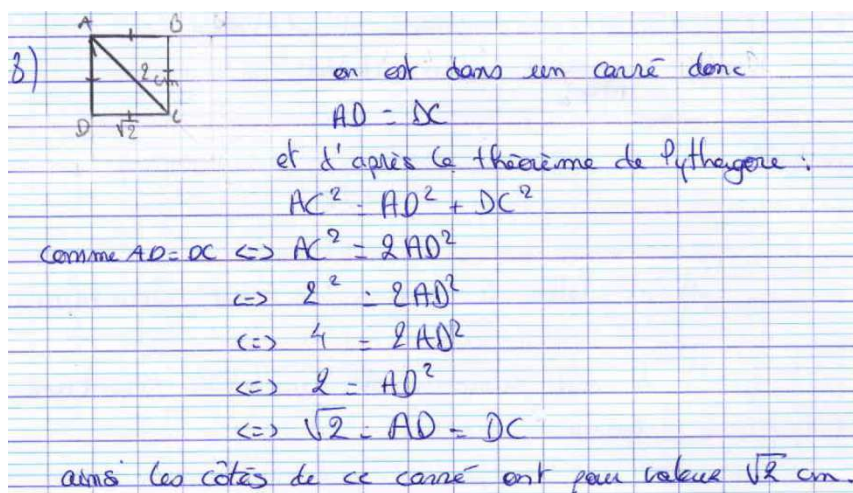 A B
8) 2cm
D √2 C
on est dans un carré donc
AD = DC
et d'après le théorème de Pythagore :
AC² = AD² + DC²
comme AD = DC <=> AC² = 2AD²
<=> 2² = 2AD²
<=> 4 = 2AD²
<=> 2 = AD²
<=> √2 = AD = DC
ainsi les côtés de ce carré ont pour valeur √2 cm.